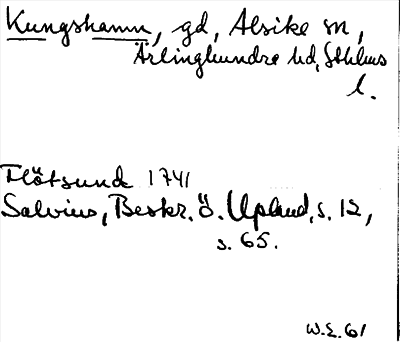 Kungshamn, gd, Alsike sn,
Ärlinghundra hd, Sthlms
l.
Flötsund 1741
Salvius, Beskr. ö. Upland, s. 12,
s. 65.
W.E. 61